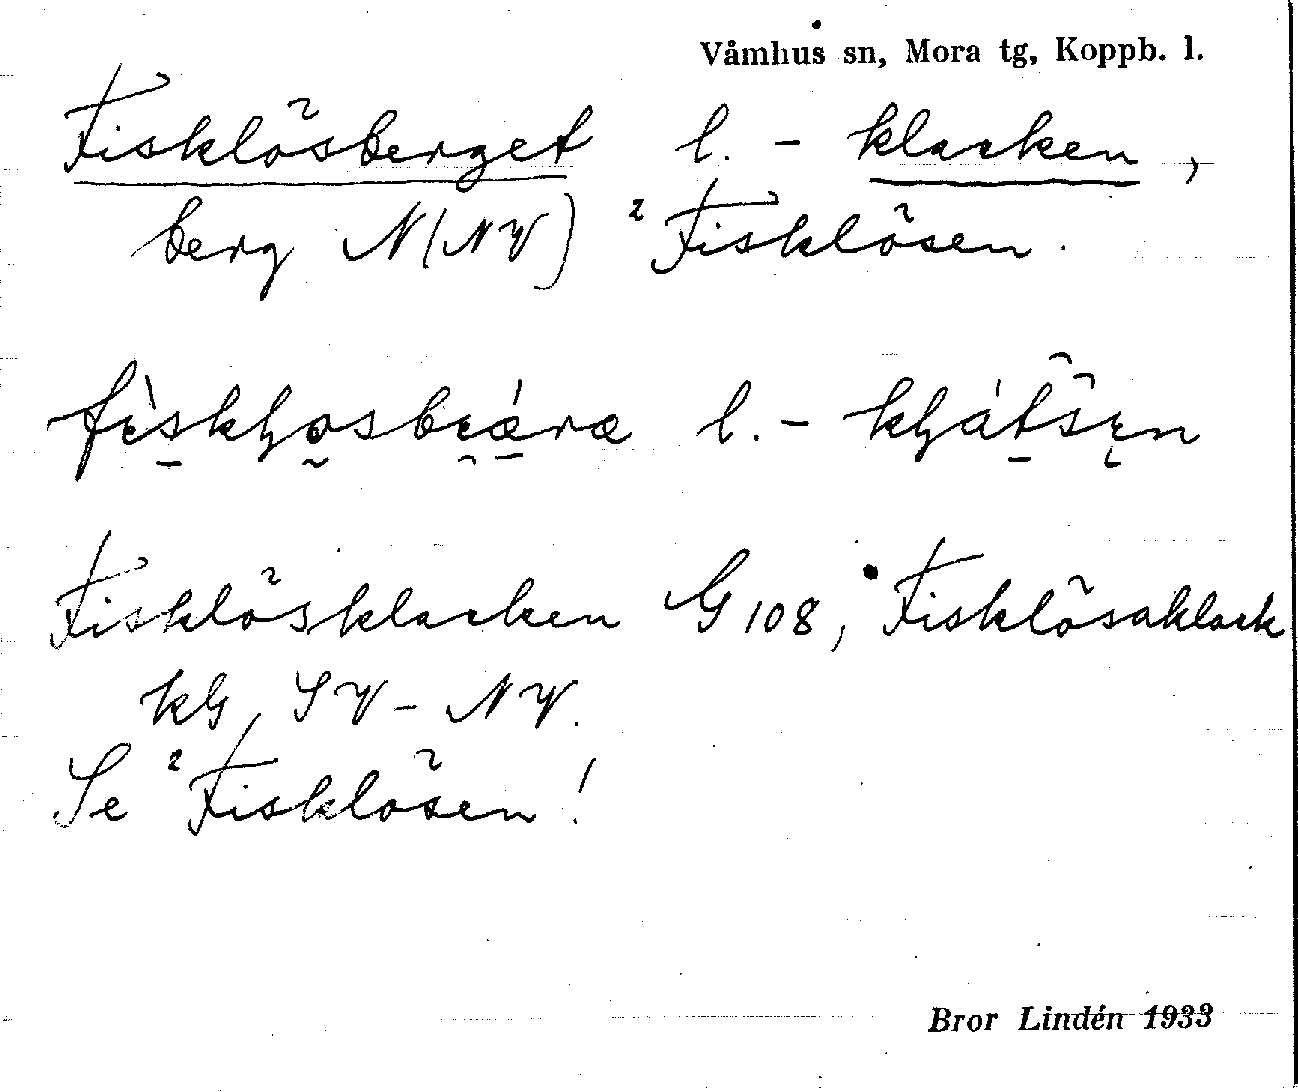 Våmhus sn, Mora tg, Koppb. l.
Fisklösberget l. - klacken,
berg N(NV) ²Fisklösen.
l. -
Fisklösklacken G 108, Fisklösaklack
kG, SV - NV.
Se ²Fisklösen!
Bror Lindén 1933